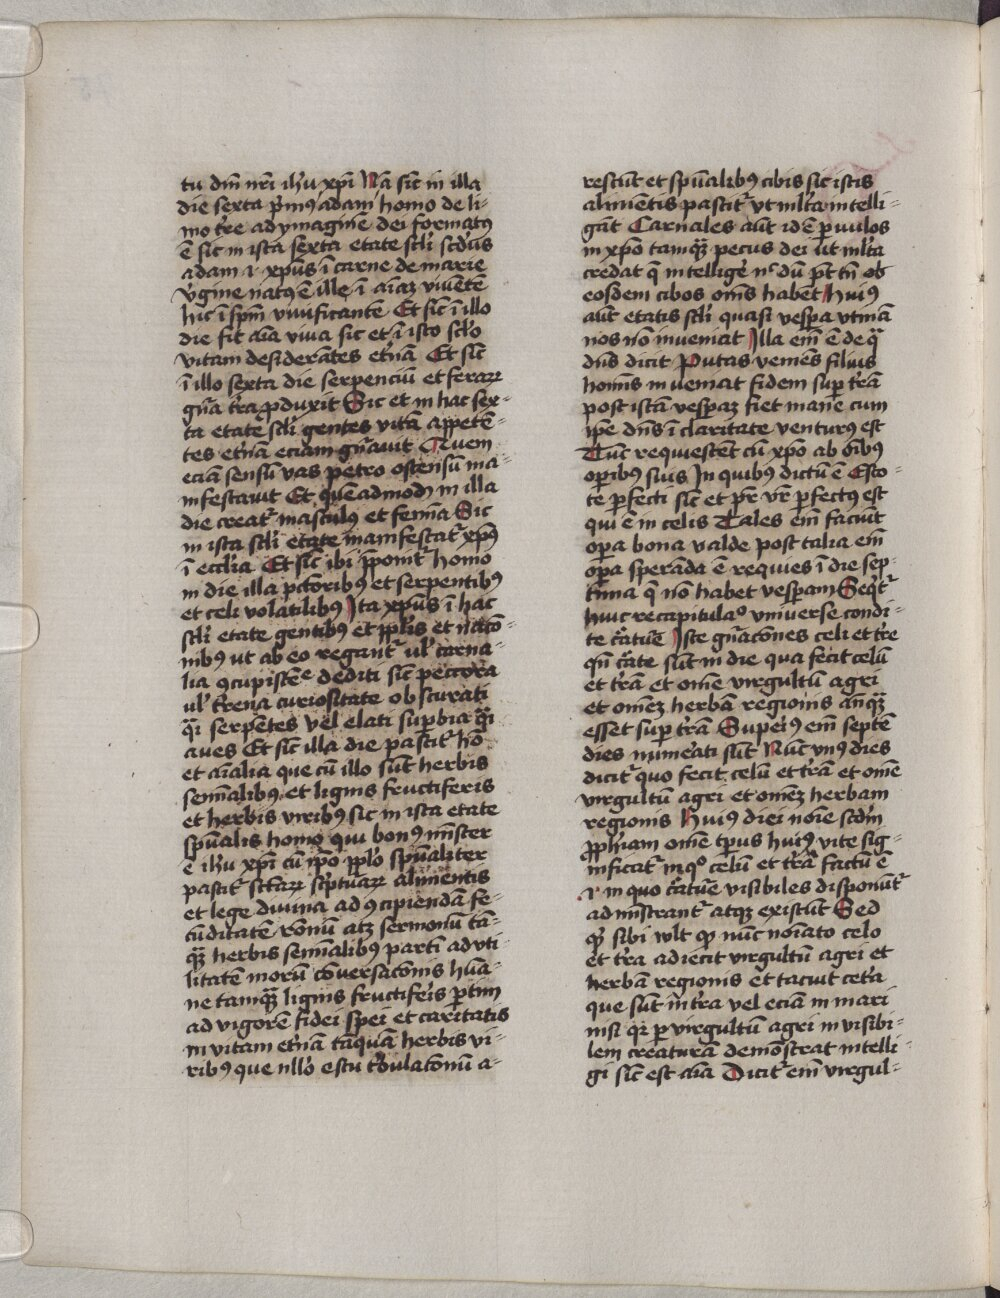 tu dm̄ nr̄i ih̓u xp̄i Nā sic̄ in illa
die sexta p̄mꝰ adam homo de li-
mo tr̄e ad ymaginē dei formatꝰ
ē sic in ista sexta etate scl̓i scd̓us
adam ⁊ xp̄us ī carne de marie
v̓gine natꝰ ē ille ī aīaꝫ viuētē
hic ī spm̄ viuificantē Et sic ī illo
die fit aīa viua sic et ī isto scl̓o
vitam desiderātes et̓nā Et sic̄
ī illo sexta die serpenciū et feraꝝ
gn̄a tr̄a ꝓduxit Sic et in hac sex-
ta etate scl̓i gentes vitā appetē-
tes et̓nā eciam gn̄auit Quem
eciā sensū vas petro ostensū ma-
nifestauit Et quēadmodū in illa
die creat᷑ masculꝰ et femīa Sic
in ista scl̓i etate manifestat᷑ xp̄ꝰ
ī eccl̓ia Et sic̄ ibi p̄ponit᷑ homo
in die illa pecoribꝰ et serpentibꝰ
et celi volatilibꝰ Ita xp̄us ī hac
scl̓i etate gentibꝰ et ppl̓is et nacō-
nibꝰ ut ab eo regant᷑ ul̓ carna-
lia ꝯcupistēe dediti sic̄ peccora
ul̓ tr̄ena curiositate obscurati
qͣi serpētes vel elati suꝑbia qͣi
aues Et sic̄ illa die pascit᷑ hō
et aīalia que cū illo sūt herbis
semīalibꝰ et lignis fructiferis
et herbis viribꝰ sic in ista etate
spūalis homo qui bonꝰ mīster
ē ih̓u xp̄i cū ip̄o ppl̓o spūaliter
pascit᷑ sc̄taꝝ sc̓ptuaꝝ alimentis
et lege diuina ad ꝯcipiendā fe-
cūditatē ronū atqꝫ sermonū tā-
qͣꝫ herbis semīalibꝰ partī ad vti-
litatē morū cōuersacōnis hūa-
ne tamqͣꝫ lignis fructifēis ꝑtim
ad vigorē fidei spei et caritatis
in vitam et̓nā tāquā herbis vi-
ribꝰ que nll̓o estu t̓bulacōnū a-
rescūt et spūalibꝰ cibis sic istis
alimētis pascit᷑ vt ml̓ta intelli-
gāt Carnales aūt id ē ꝑuulos
in xp̄o tamqͣꝫ pecus dei ut ml̓ta
credat q̄ intelligē nō dū pt̄ tn̄ ob
eosdem cibos om̄s habēt Huiꝰ
aūt etatis scl̓i quasi vespa vtinā
nos nō inueniat Illa em̄ ē de qͣ
dn̄s dicit Putas veniēs filius
homis inueniat fidem suꝑ tr̄ā
post istā vesꝑaꝫ fiet mane cum
ip̄e dn̄s ī claritate venturꝰ est
Tūc requiescēt cū xp̄o ab oībꝰ
oꝑibꝰ suis In quibꝰ dictū ē Esto-
te ꝑfecti sic̄ et pr̄ vr̄ ꝑfectꝰ est
qui ē in celis Tales em̄ faciūt
oꝑa bona valde post talia em̄
oꝑa sperāda ē requies ī die sep-
tima q̄ nō habet vesꝑam Seqͥt᷑
huic recapitulaᵒ vniuerse condi-
te c̓atuē Iste gn̄acōnes celi et tr̄e
qn̄ c̓ate sūt in die qua fecit celū
et tr̄ā et omē virgultū agri
et omēꝫ herbā regionis anqͣꝫ
esset suꝑ tr̄ā Superiꝰ em̄ septē
dies numēati sūt Nūc vnꝰ dies
dicit᷑ quo fecit celū et tr̄ā et omē
virgultū agri et omēꝫ herbam
regionis Huiꝰ diei noīe scd̓m
ꝓph̄iam omē tp̄us huiꝰ vite sig-
nificat᷑ in qᵒ celū et tr̄a factū ē
⁊ in quo c̓atuē visibiles disponūt᷑
admīstrant᷑ atqꝫ existūt Sed
qͥd sibi wlt qͩ nūc noīato celo
et tr̄a adiecit virgultū agri et
herbā regionis et tacuit cet̓a
que sūt in tr̄a vel eciā in mari
nisi qꝛ ꝑ virgultū agri inuisibi-
lem creaturā demōstrat intelli-
gi sic̄ est aīa Dicit᷑ em̄ virgul-